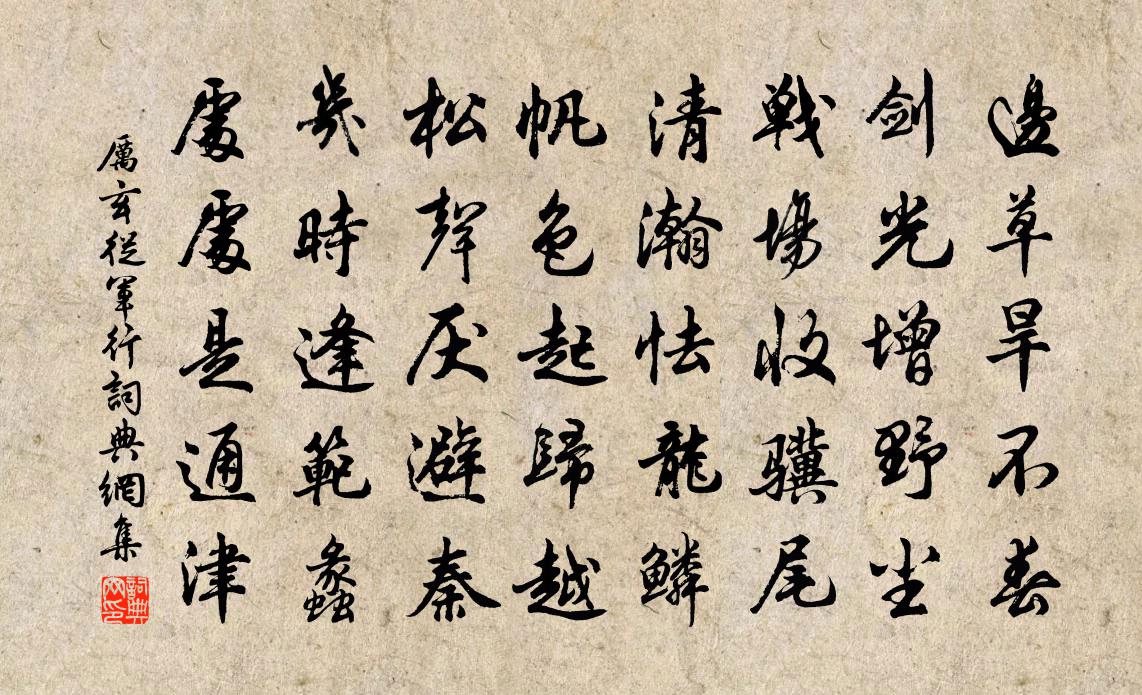 邊草旱不春
剑光增野尘
戦場收骥尾
清瀚怯龍鳞
帆色起歸越
松聲厌避秦
幾時逢範蠡
處處是通津
厲玄從軍行詞典網集
詞典网印